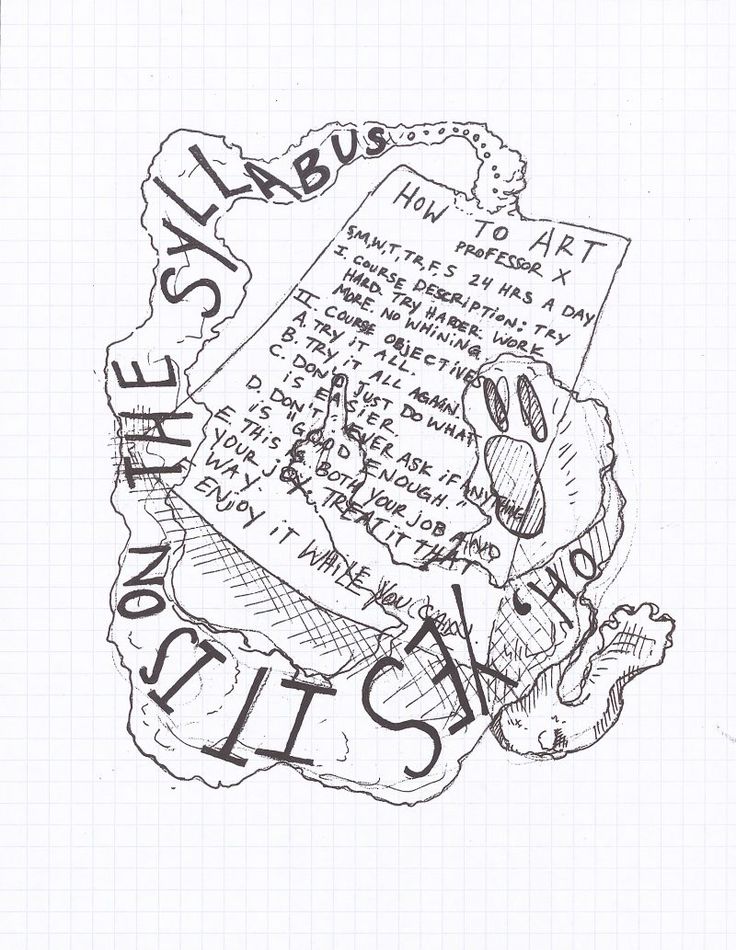 HOW TO ART
PROFESSOR X
S,M,W,T,TR,F,S 24 HRS A DAY
I. COURSE DESCRIPTION: TRY
HARD. TRY HARDER. WORK
MORE. NO WHINING.
II COURSE OBJECTIVES
A. TRY IT ALL.
B. TRY IT ALL AGAIN.
C. DON'T JUST DO WHAT
IS EASIER.
D. DON'T EVER ASK IF ANYTHING
IS "GOOD ENOUGH."
E. THIS IS BOTH YOUR JOB AND
YOUR JOY. TREAT IT THAT
WAY.
ENJOY IT WHILE YOU CAN.
OH, YES IT IS ON THE SYLLABUS